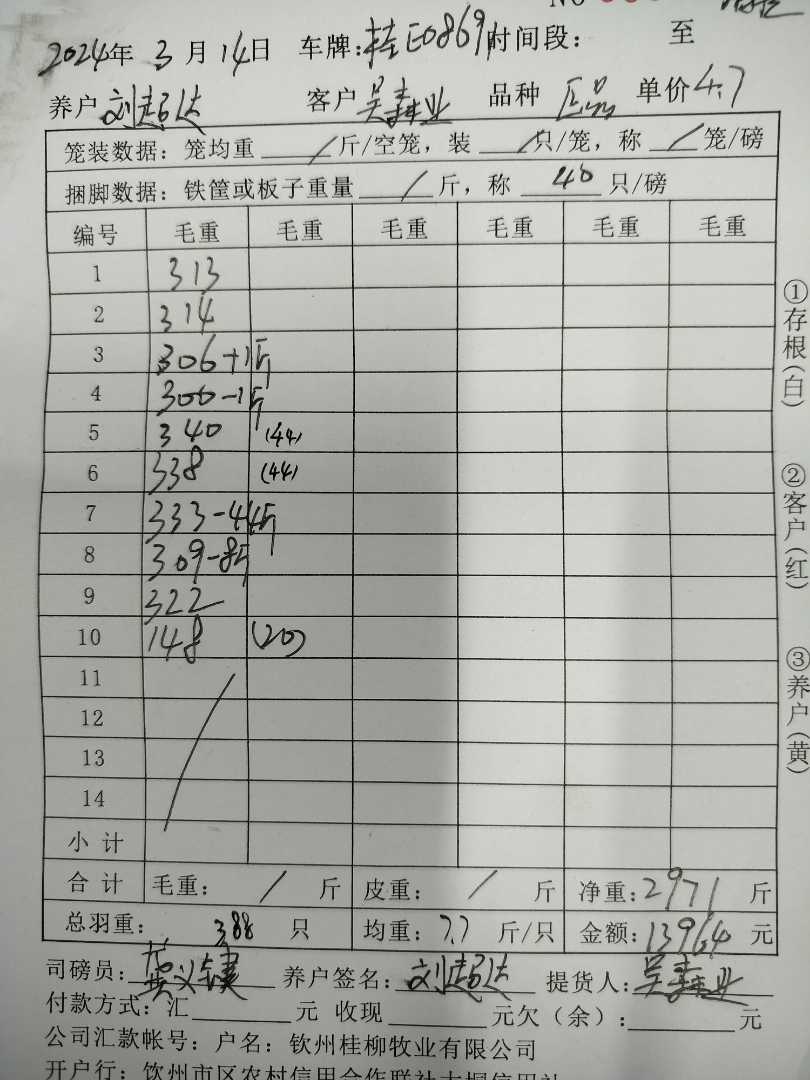 NO
2024年 3 月 14日 车牌:桂E0869 时间段: 至
养户 刘超达 客户 吴寿业 品种 正品 单价 4.7
笼装数据: 笼均重 / 斤/空笼, 装 / 只/笼, 称 / 笼/磅
捆脚数据: 铁筐或板子重量 / 斤, 称 40 只/磅
编号 毛重 毛重 毛重 毛重 毛重 毛重
1 313
2 314
3 306+1斤
4 300-1斤
5 340 (44)
6 338 (44)
7 333-44斤
8 309-8斤
9 322
10 148 (20)
11
12
13
14
小计
合计 毛重: / 斤 皮重: / 斤 净重:2971 斤
总羽重: 388 只 均重: 7.7 斤/只 金额:13964 元
司磅员: 养户签名: 刘超达 提货人: 吴寿业
付款方式: 汇 元 收现 元欠(余): 元
公司汇款帐号: 户名: 钦州桂柳牧业有限公司
开户行: 钦州市区农村信用合作联社大垌信用社
①存根(白)
②客户(红)
③养户(黄)